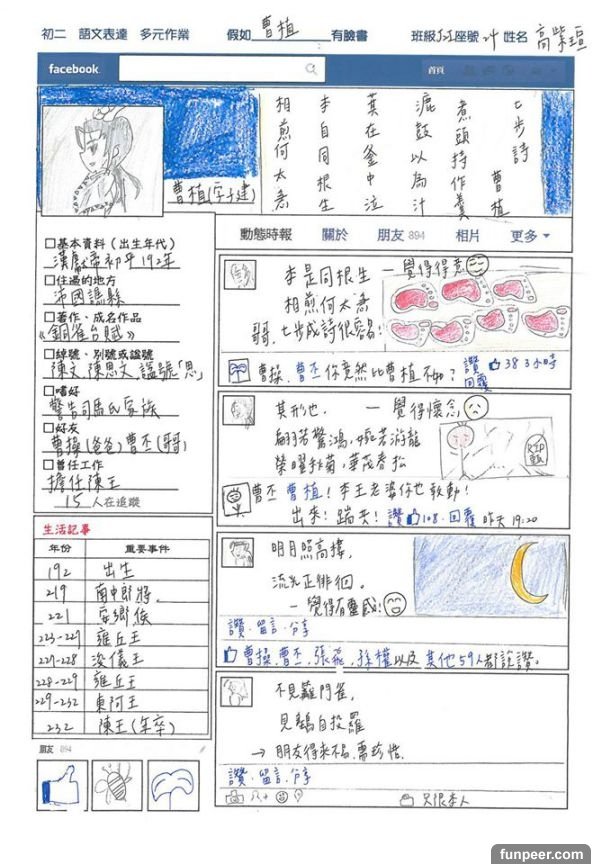 初二 語文表達 多元作業 假如 曹植 有臉書 班級 座號 姓名 高紫瑄
facebook
首頁
曹植(字子建)
七步詩 曹植
煮頭持作羹
漉鼓以為汁
萁在釜中泣
本自同根生
相煎何太急
動態時報 關於 朋友 894 相片 更多
□基本資料(出生年代)
漢獻帝初平192年
□住過的地方
沛國譙縣
□著作、成名作品
《銅雀台賦》
□綽號、別號或諡號
陳文,陳思文,諡號「思」
□嗜好
警告司馬氏家族
□好友
曹操(爸爸)曹丕(哥哥)
□曾任工作
擔任陳王
15 人在追蹤
生活記事
年份 重要事件
192 出生
219 南中郎將
221 安鄉侯
223-227 雍丘王
227-228 浚儀王
228-229 雍丘王
229-232 東阿王
232 陳王(年卒)
朋友 894
本是同根生 —覺得得意
相煎何太急
哥,七步成詩很容易!
曹操,曹丕你竟然比曹植不如? 讚 38 3小時
回覆
其形也, —覺得懷念
翩若驚鴻,婉若游龍
榮曜秋菊,華茂春松
RIP
甄
曹丕 曹植!本王老婆你也敢動!
出來!踹共! 讚 108 · 回覆 昨天 19:20
明月照高樓,
流光正徘徊。
—覺得有靈感!
讚 · 留言 · 分享
曹操,曹丕,張飛,孫權以及其他59人都說讚。
不見籬間雀,
見鷂自投羅
→ 朋友得來不易,需珍惜
讚 · 留言 · 分享
只限本人
funpeer.com